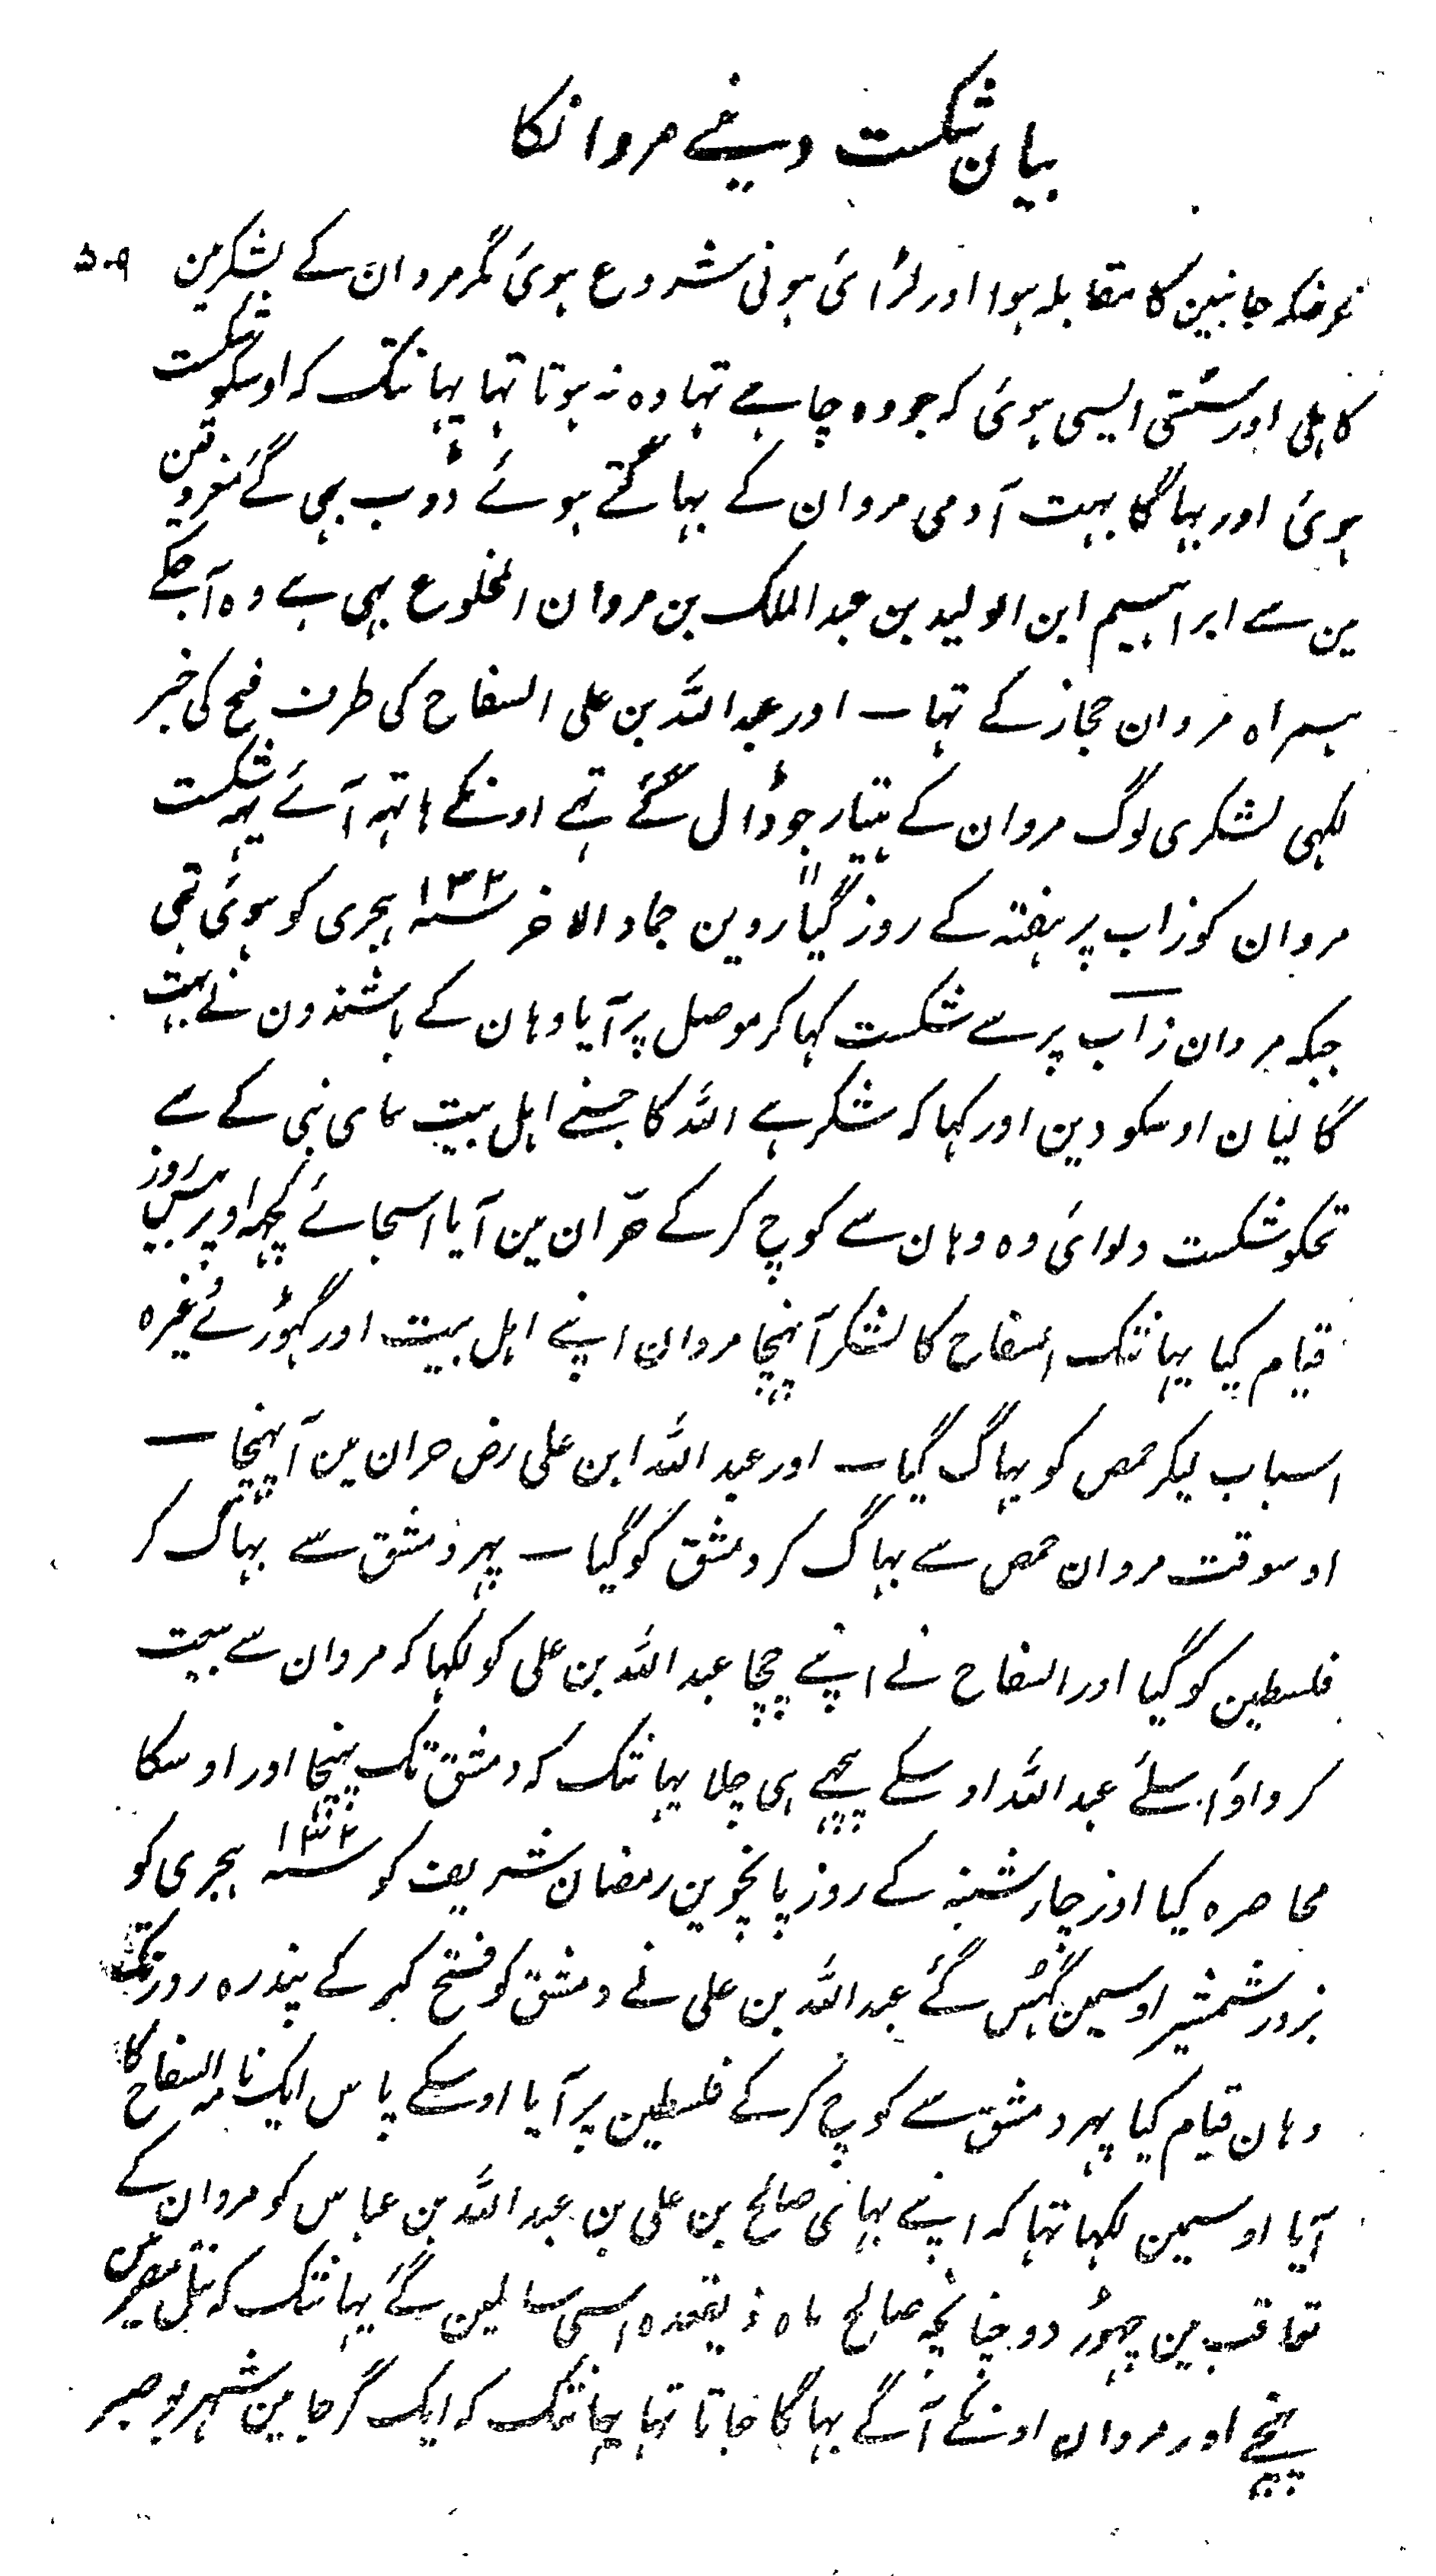 بیان شکست دینے مروانکا
۵۰۹
غرضکہ جانبین کا مقابلہ ہوا اور لڑائی ہونی شروع ہوئی مگر مروان کے لشکر مین
کاہلی اور سستی ایسی ہوئی کہ جو وہ چاہے تہا وہ نہ ہوتا تہا یہانتک کہ اوسکو شکست
ہوئی اور بہاگا بہت آدمی مروان کے بہاگتے ہوئے ڈوب بھی گئے مغروقین
مین سے ابراہیم ابن الولید بن عبد الملک بن مروان المخلوع یہی ہے وہ آجکے
ہمراہ مروان حجاز کے تہا۔ اور عبد اللہ بن علی السفاح کی طرف فتح کی خبر
لکہی لشکری لوگ مروان کے ہتیار جو ڈال گئے تہے اونکے ہاتہہ آئے یہہ شکست
مروان کو زاب پر ہفتہ کے روز گیاروین جماد الاخر سنہ ۱۳۲ ہجری کو ہوئی تہی
جبکہ مروان زاب پر سے شکست کہا کر موصل پر آیا وہان کے باشندون نے بہت
گالیان اوسکو دین اور کہا کہ شکر ہے اللہ کا جسنے اہل بیت نبی کے سے
تمکو شکست دلوائی وہ وہان سے کوچ کر کے حران مین آیا اسجائے کچہہ اوپر بیس روز
قیام کیا یہانتک السفاح کا لشکر آپہنچا مروان اپنے اہل بیت اور گہوڑے وغیرہ
اسباب لیکر حمص کو بہاگ گیا۔ اور عبد اللہ ابن علی رض حران مین آپہنچا۔
اوسوقت مروان حمص سے بہاگ کر دمشق کو گیا۔ پہر دمشق سے بہاگ کر
فلسطین کو گیا اور السفاح نے اپنے چچا عبد اللہ بن علی کو لکہا کہ مروان سے بیعت
کرواؤ اسلئے عبد اللہ اوسکے پیچہے ہی چلا یہانتک کہ دمشق تک پہنچا اور اوسکا
محاصرہ کیا اور چارشنبہ کے روز پانچوین رمضان شریف کو سنہ ۱۳۲ ہجری کو
بزور شمشیر اوسمین گہس گئے عبد اللہ بن علی نے دمشق کو فتح کر کے پندرہ روز تک
وہان قیام کیا پہر دمشق سے کوچ کر کے فلسطین پر آیا اوسکے پاس ایک نامہ السفاح کا
آیا اوسمین لکہا تہا کہ اپنے بہائی صالح بن علی بن عبد اللہ بن عباس کو مروان کے
تعاقب مین چہوڑ دو چنانچہ صالح ماہ ذیقعدہ اسی سالمین گئے یہانتک کہ نیل مصر مین
پہنچے اور مروان اونکے آگے بہاگا جاتا تہا یہانتک کہ ایک گرجا مین شہر بوصیر